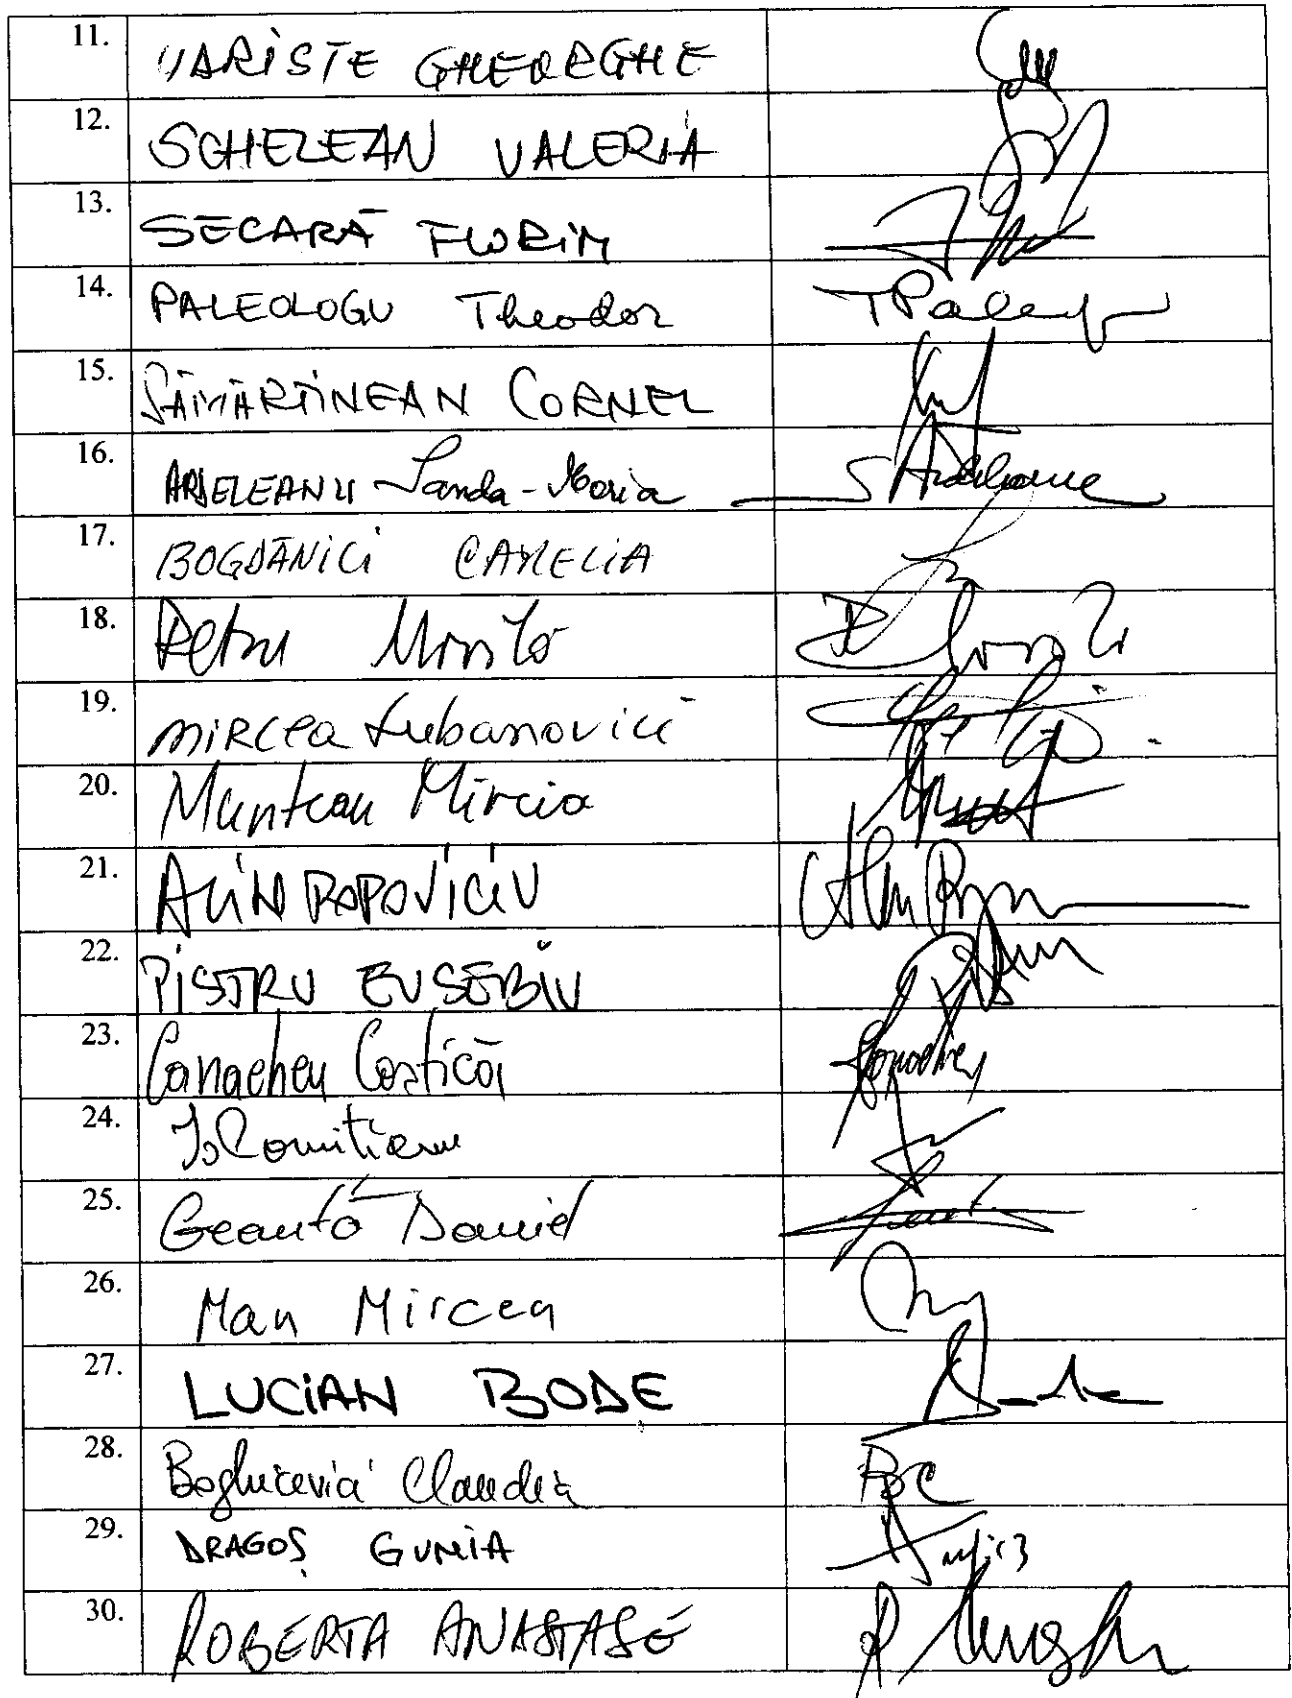 11. VARISTE GHEORGHE
12. SCHELEAN VALERIA
13. SECARĂ FLORIN
14. PALEOLOGU Theodor TPaleologu
15. SĂMĂRTINEAN CORNEL
16. ARDELEANU Sanda-Maria SArdeleanu
17. BOGDĂNICI CAMELIA
18. Petru Movilă
19. MIRCEA Lubanovici
20. Muntean Mircia
21. ALIN POPOVICIU
22. PISTRU EUSEBIU
23. Canacheu Costică
24.
25. Geantă Daniel
26. Man Mircea
27. LUCIAN BODE
28. Boghicevici Claudia BC
29. DRAGOȘ GUNIA
30. ROBERTA ANASTASE